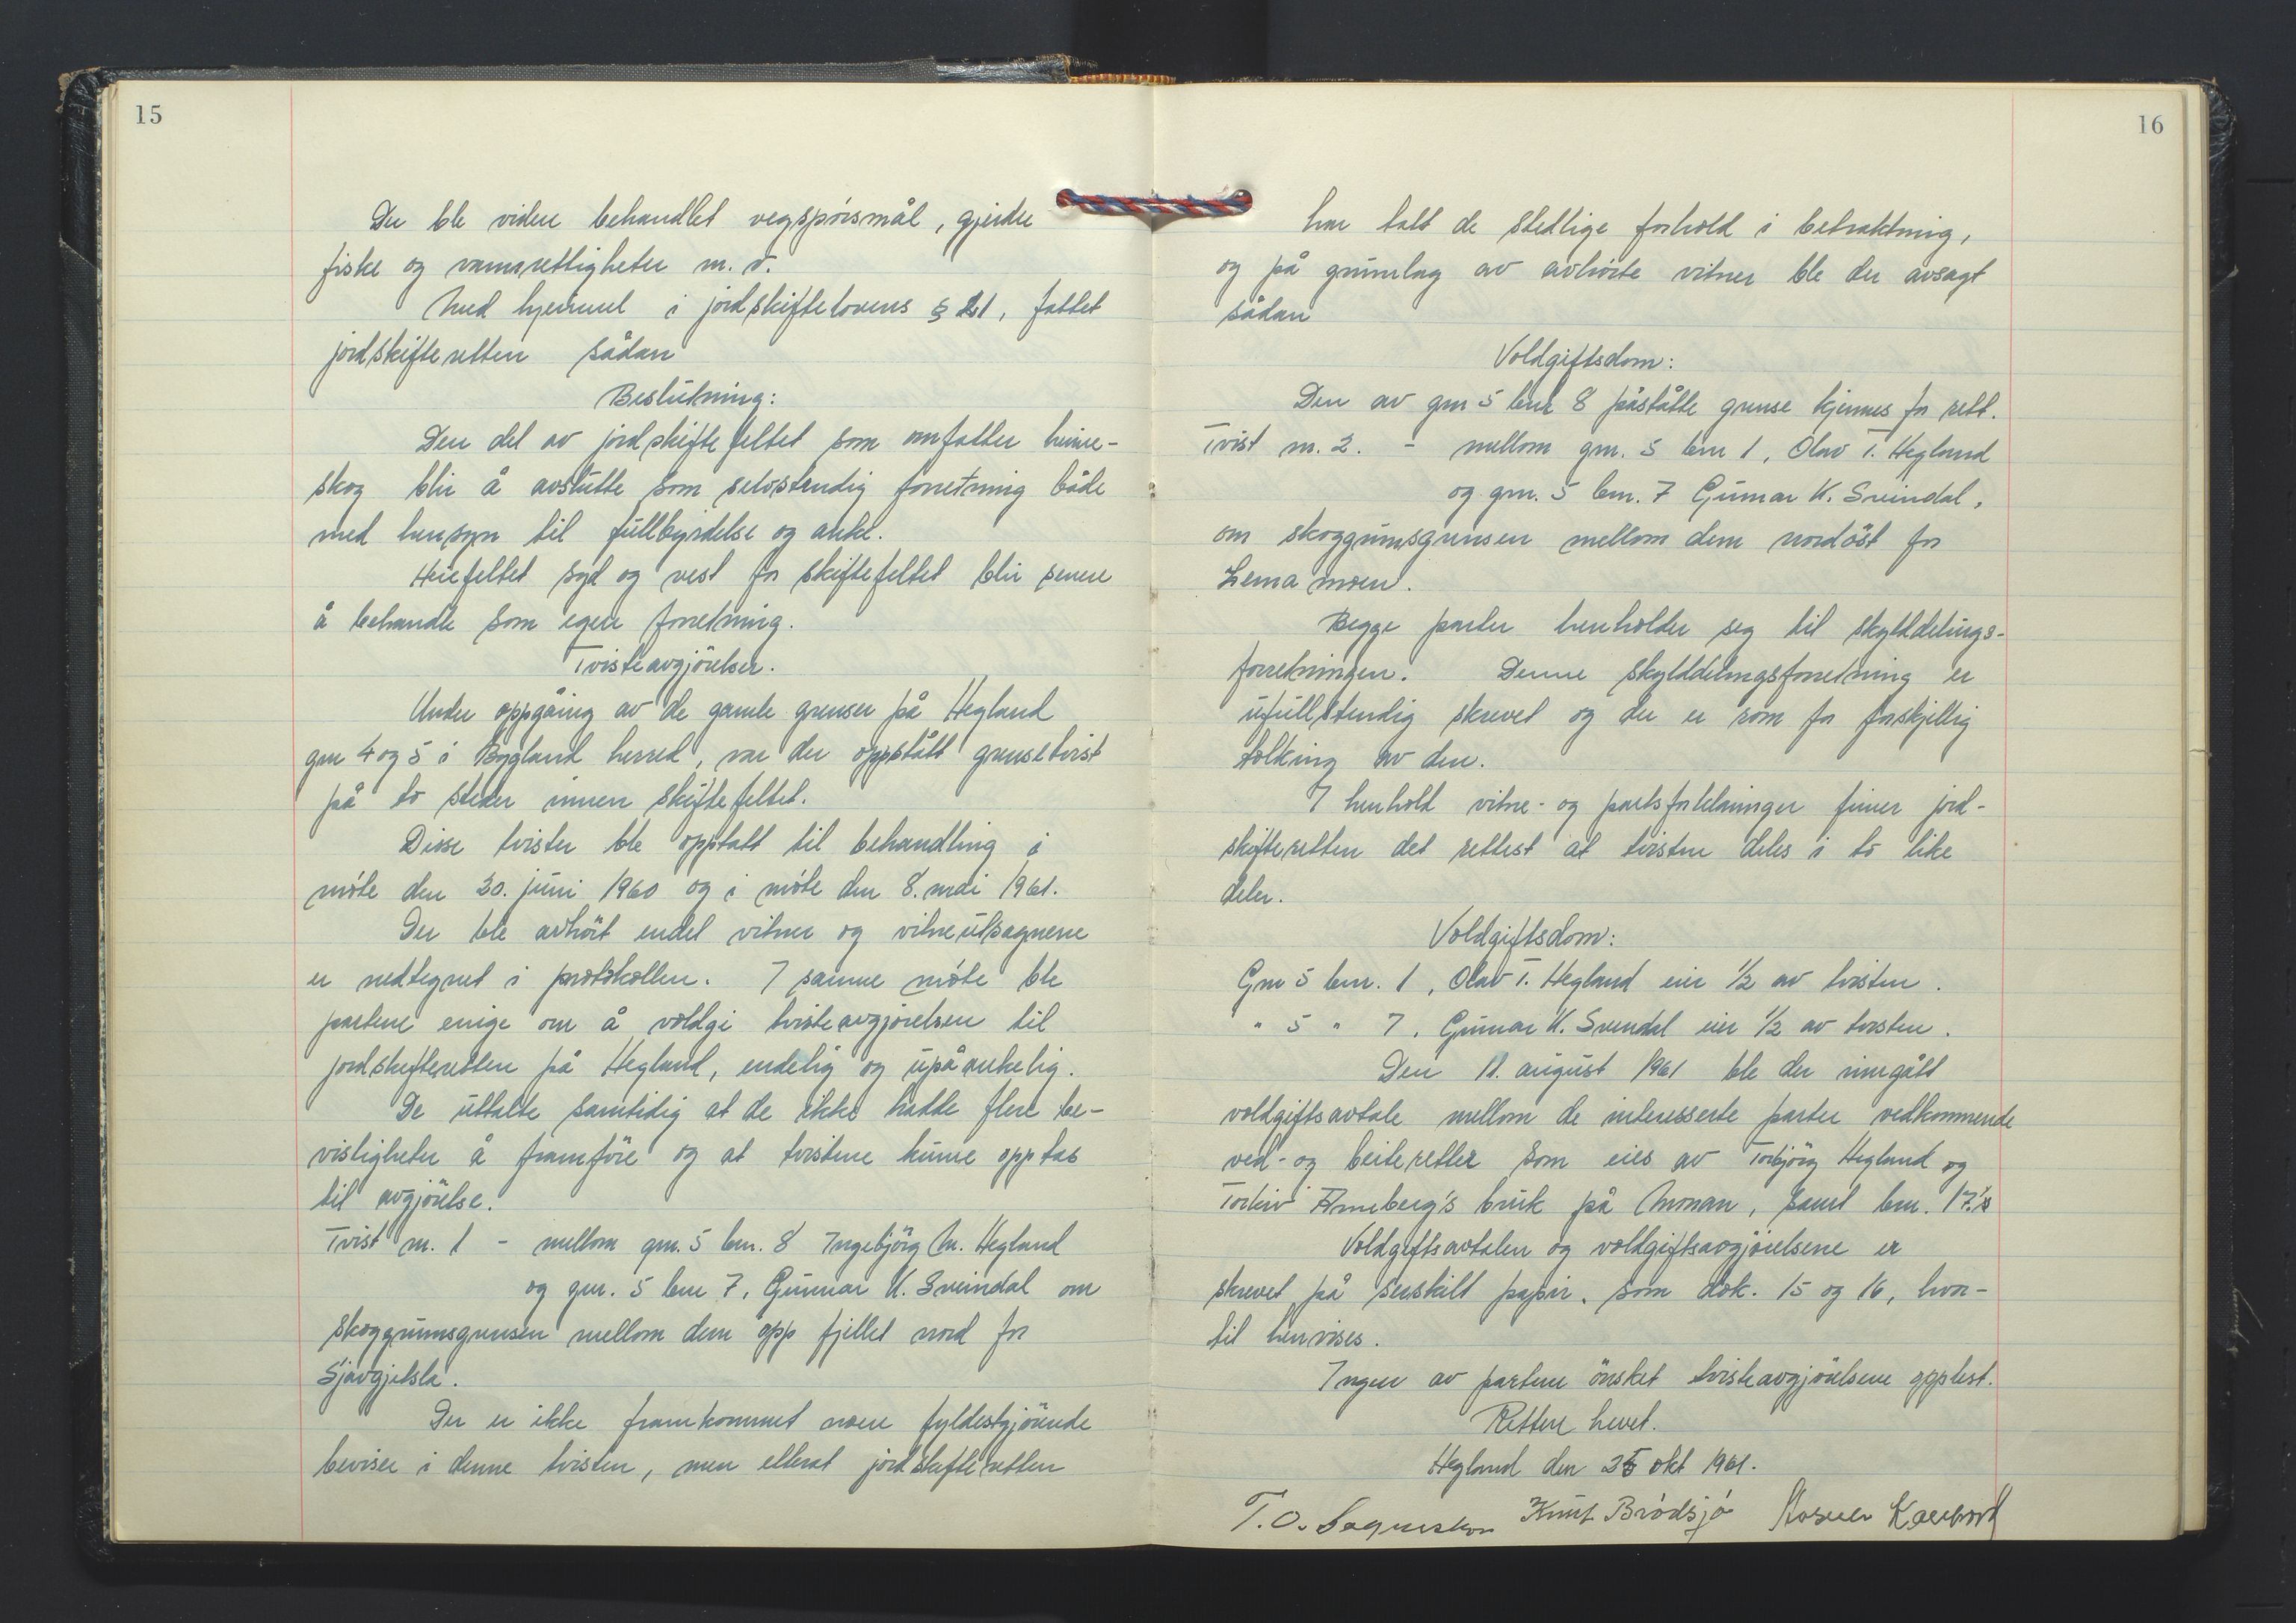 15
Der ble videre behandlet vegspörsmål, gjerder
fiske og vannrettigheter m. v.
Med hjemmel i jordskiftelovens § 21, fattet
jordskifteretten sådan
Beslutning:
Den del av jordskiftefeltet som omfatter heime-
skog blir å avslutte som selvstendig forretning både
med hensyn til fullbyrdelse og anke.
Heiefeltet syd og vest for skiftefeltet blir senere
å behandle som egen forretning.
Tvisteavgjörelser.
Under oppgåing av de gamle grenser på Hegland
gnr 4 og 5 i Bygland herred, var der oppstått grensetvist
på to steder innen skiftefeltet.
Disse tvister ble opptatt til behandling i
möte den 30. juni 1960 og i möte den 8. mai 1961.
Der ble avhört endel vitner og vitneutsagnene
er nedtegnet i protokollen. I samme möte ble
partene enige om å voldgi tvisteavgjörelsen til
jordskifteretten på Hegland, endelig og upåankelig.
De uttalte samtidig at de ikke hadde flere be-
visligheter å framföre og at tvistene kunne opptas
til avgjörelse.
Tvist nr. 1 - mellom gnr. 5 bnr. 8 Ingebjörg M. Hegland
og gnr. 5 bnr 7, Gunnar K. Sveindal om
skoggrunnsgrensen mellom dem opp fjellet nord for
Sjavgjelsla.
Der er ikke framkommet noen fyldestgjörende
beviser i denne tvisten, men etterat jordskifteretten
16
har tatt de stedlige forhold i betraktning,
og på grunnlag av avhörte vitner ble der avsagt
sådan
Voldgiftsdom:
Den av gnr 5 bnr 8 påståtte grense kjennes for rett.
Tvist nr. 2. - mellom gnr. 5 bnr 1, Olav T. Hegland
og gnr. 5 bnr. 7 Gunnar K. Sveindal,
om skoggrunnsgrensen mellom dem nordöst for
Lema moen.
Begge parter henholder seg til skylddelings-
forretningen. Denne skylddelingsforretning er
ufullstendig skrevet og der er rom for forskjellig
tolking av den.
I henhold vitne- og partsforklaringer finner jord-
skifteretten det rettest at tvisten deles i to like
deler.
Voldgiftsdom:
Gnr 5 bnr. 1, Olav T. Hegland eier 1/2 av tvisten.
" 5 " 7, Gunnar K. Sveindal eier 1/2 av tvisten.
Den 11. august 1961 ble der inngått
voldgiftsavtale mellom de interesserte parter vedkommende
ved- og beiteretter som eies av Torbjörg Hegland og
Torleiv Åmeberg's bruk på Monan, samt bnr. 17's
Voldgiftsavtalen og voldgiftsavgjörelsene er
skrevet på serskilt papir, som dok. 15 og 16, hvor-
til henvises.
Ingen av partene önsket tvisteavgjörelsene opplest.
Retten hevet.
Hegland den 25 okt 1961.
T. O. Knut Brödsjö